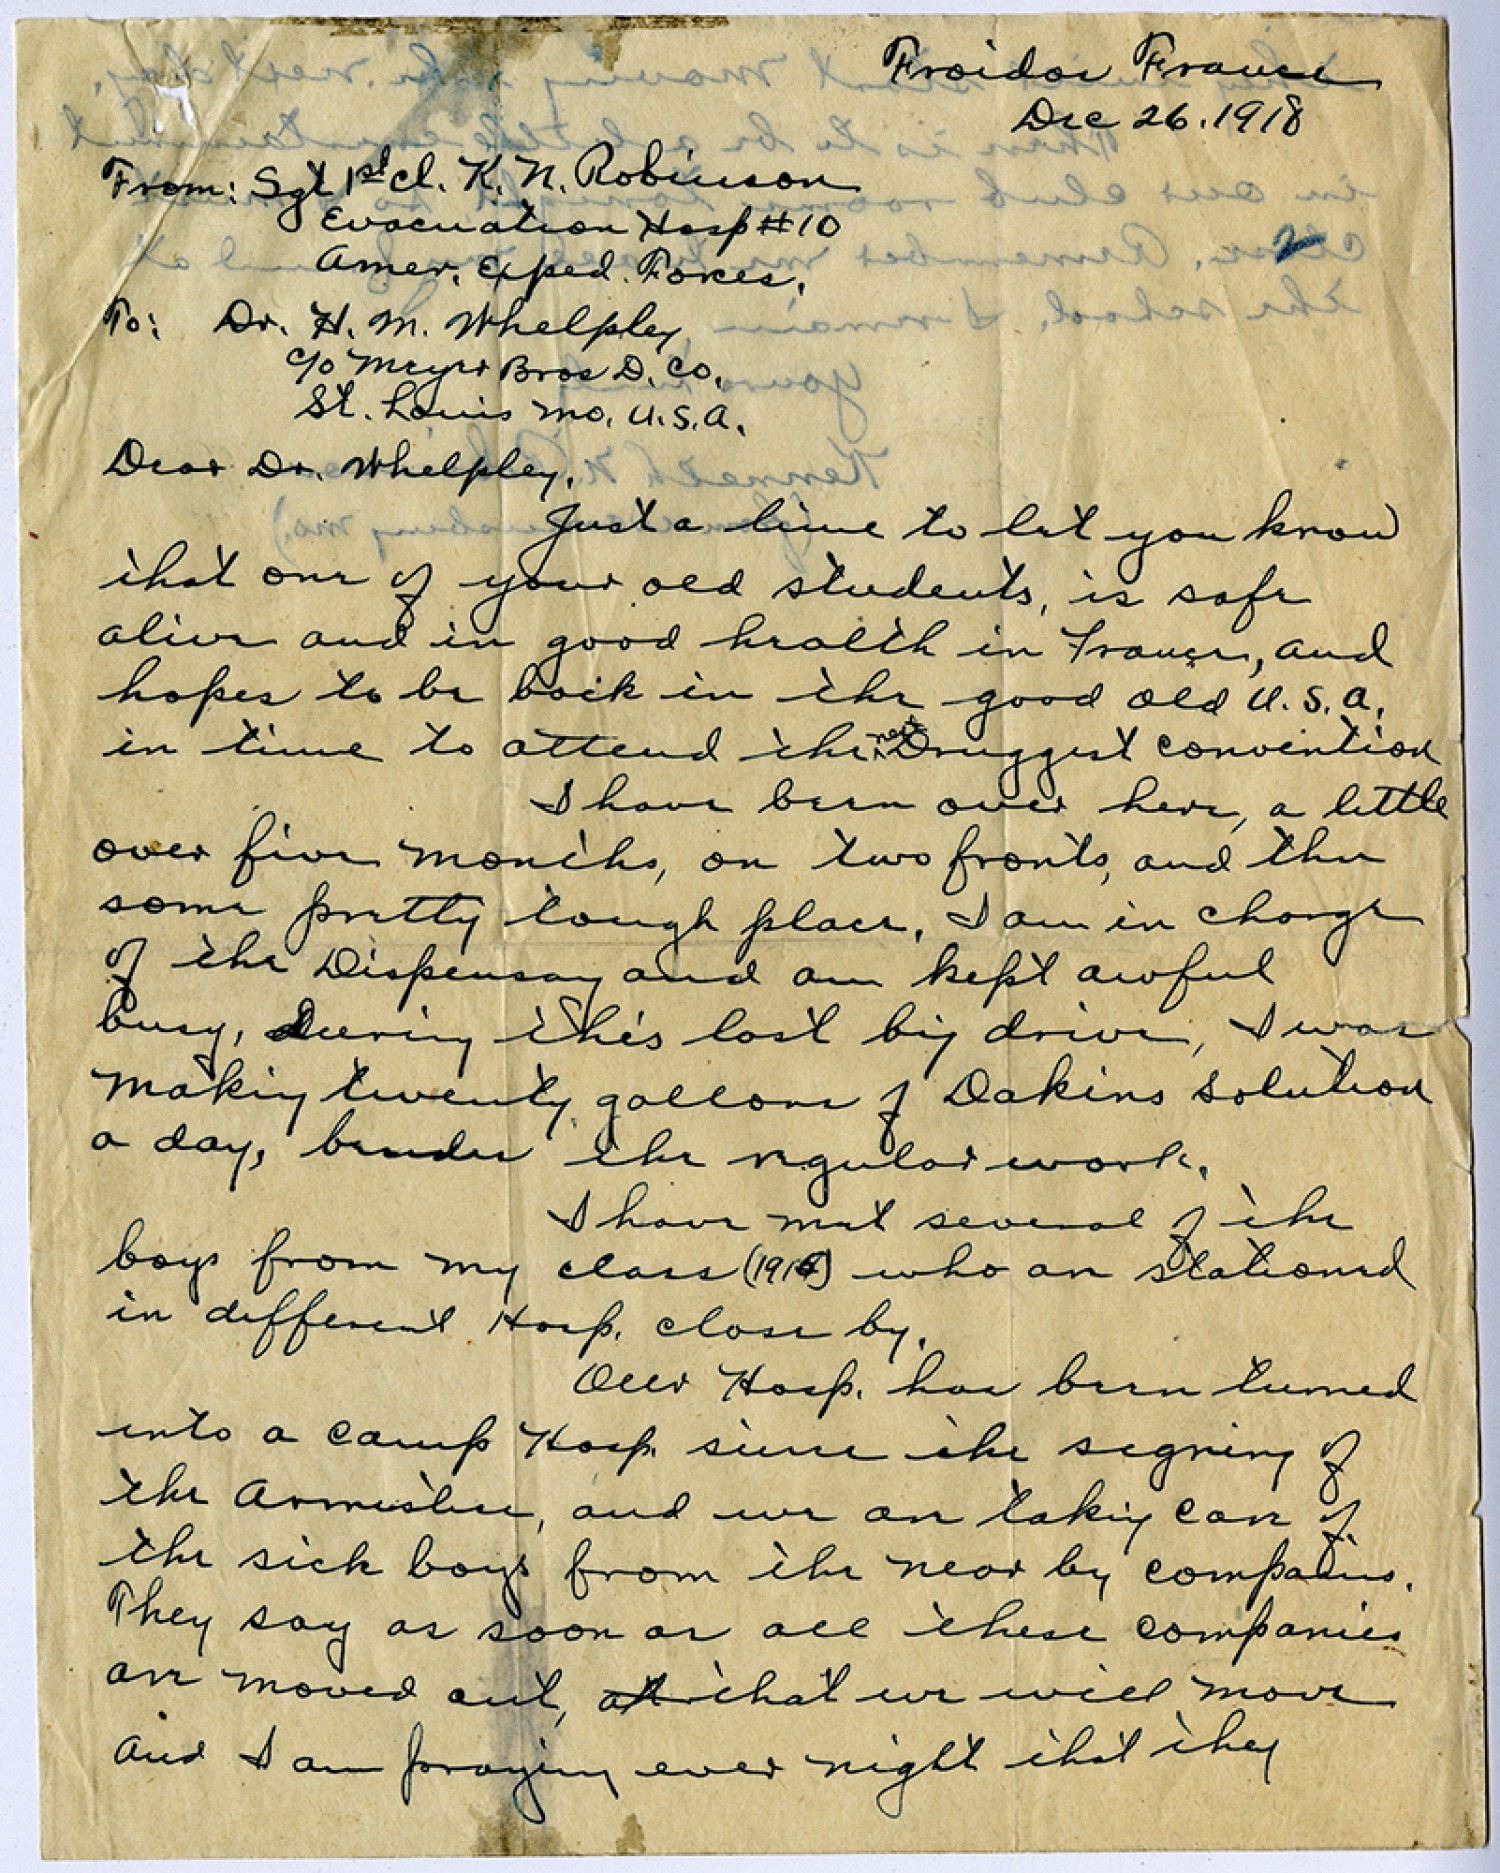 Froidos France
Dec 26. 1918
From: Sgt 1st cl. K. N. Robinson
Evacuation Hosp #10
Amer. Exped. Forces.
2
To: Dr. H. M. Whelpley
c/o Meyer Bros D. Co.
St. Louis Mo. U.S.A.
Dear Dr. Whelpley,
Just a line to let you know
that one of your old students, is safe
alive and in good health in France, and
hopes to be back in the good old U.S.A.
in time to attend the next Druggist convention
I have been over here, a little
over five months, on two fronts, and the
some pretty tough place. I am in charge
of the Dispensay and am kept awful
busy, During the's last big drive, I was
making twenty gallons of Dakins solution
a day, besides the regular work.
I have met several of the
boys from my class (1916) who are stationed
in different Hosp. close by.
Our Hosp. has been turned
into a camp Hosp. since the signing of
the Armistice, and we are taking care of
the sick boys from the near by companies.
They say as soon as all these companies
are moved out, that we will move
and I am praying ever night that they